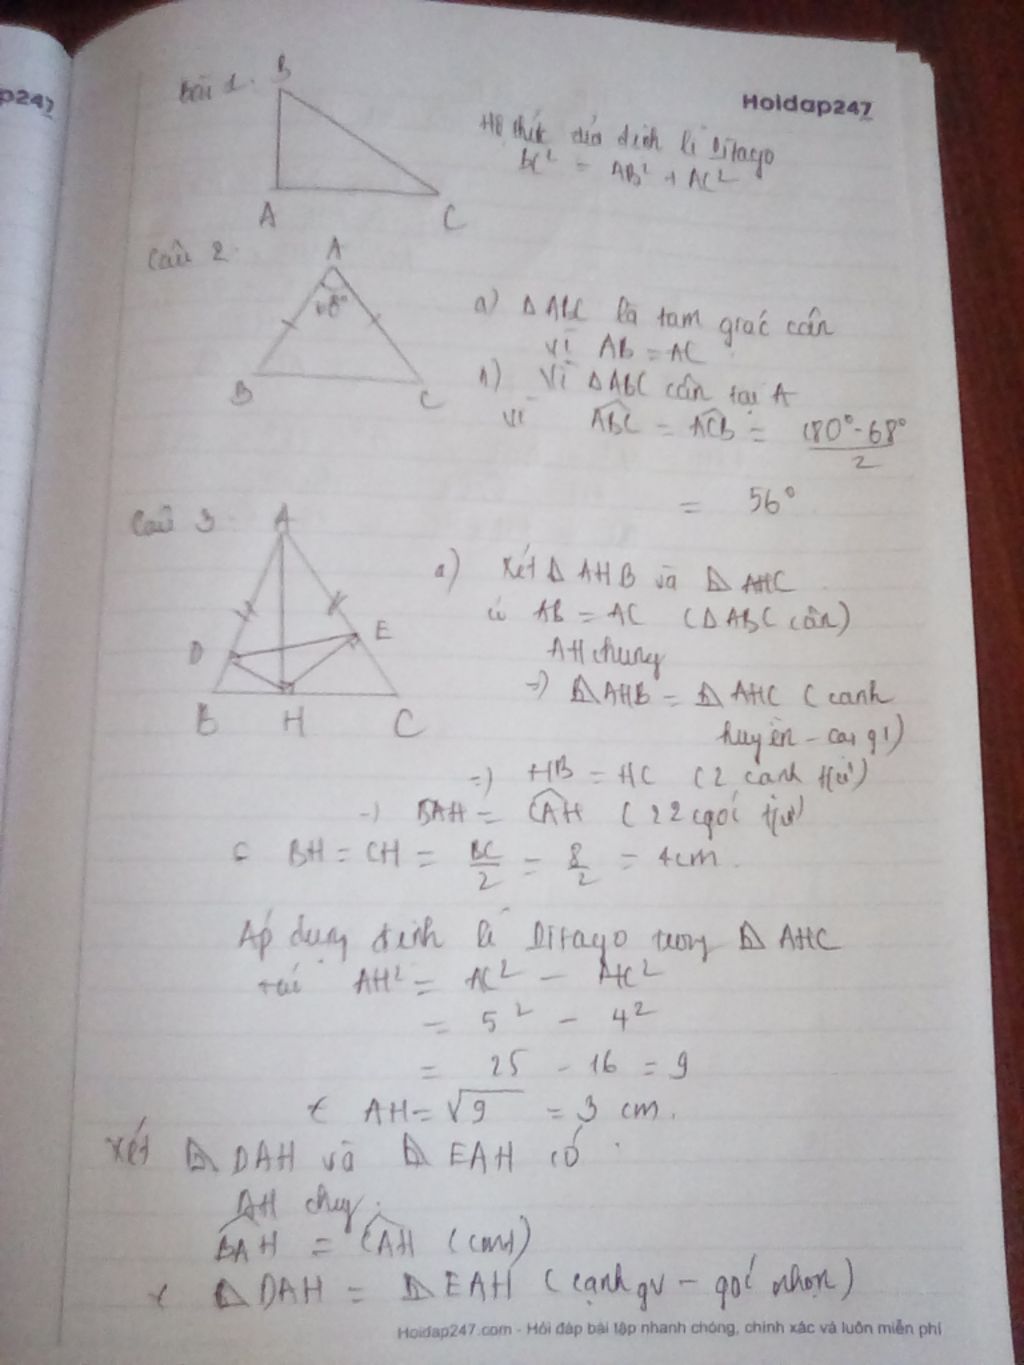 p247
Hoidap247
Bài 1.
B
A
C
Hệ thức của định lí Pitago
BC² = AB² + AC²
Câu 2.
A
68°
B
C
a) ΔABC là tam giác cân
vì AB = AC
Vì ΔABC cân tại A
vì ABC = ACB = 180° - 68° / 2
= 56°
Câu 3.
A
D
E
B
H
C
a) Xét Δ AHB và Δ AHC
có AB = AC (ΔABC cân)
AH chung
=> Δ AHB = Δ AHC (cạnh
huyền - cạnh g)
=> HB = HC (2 cạnh t/ư)
=> BAH = CAH (2 góc t/ư)
BH = CH = BC/2 = 8/2 = 4cm.
Áp dụng định lí Pitago trong Δ AHC
AH² = AC² - HC²
= 5² - 4²
= 25 - 16 = 9
AH = √9 = 3 cm.
Xét Δ DAH và Δ EAH có
AH chung
BAH = CAH (cmt)
Δ DAH = Δ EAH (cạnh gv - góc nhọn)
Hoidap247.com - Hỏi đáp bài tập nhanh chóng, chính xác và luôn miễn phí